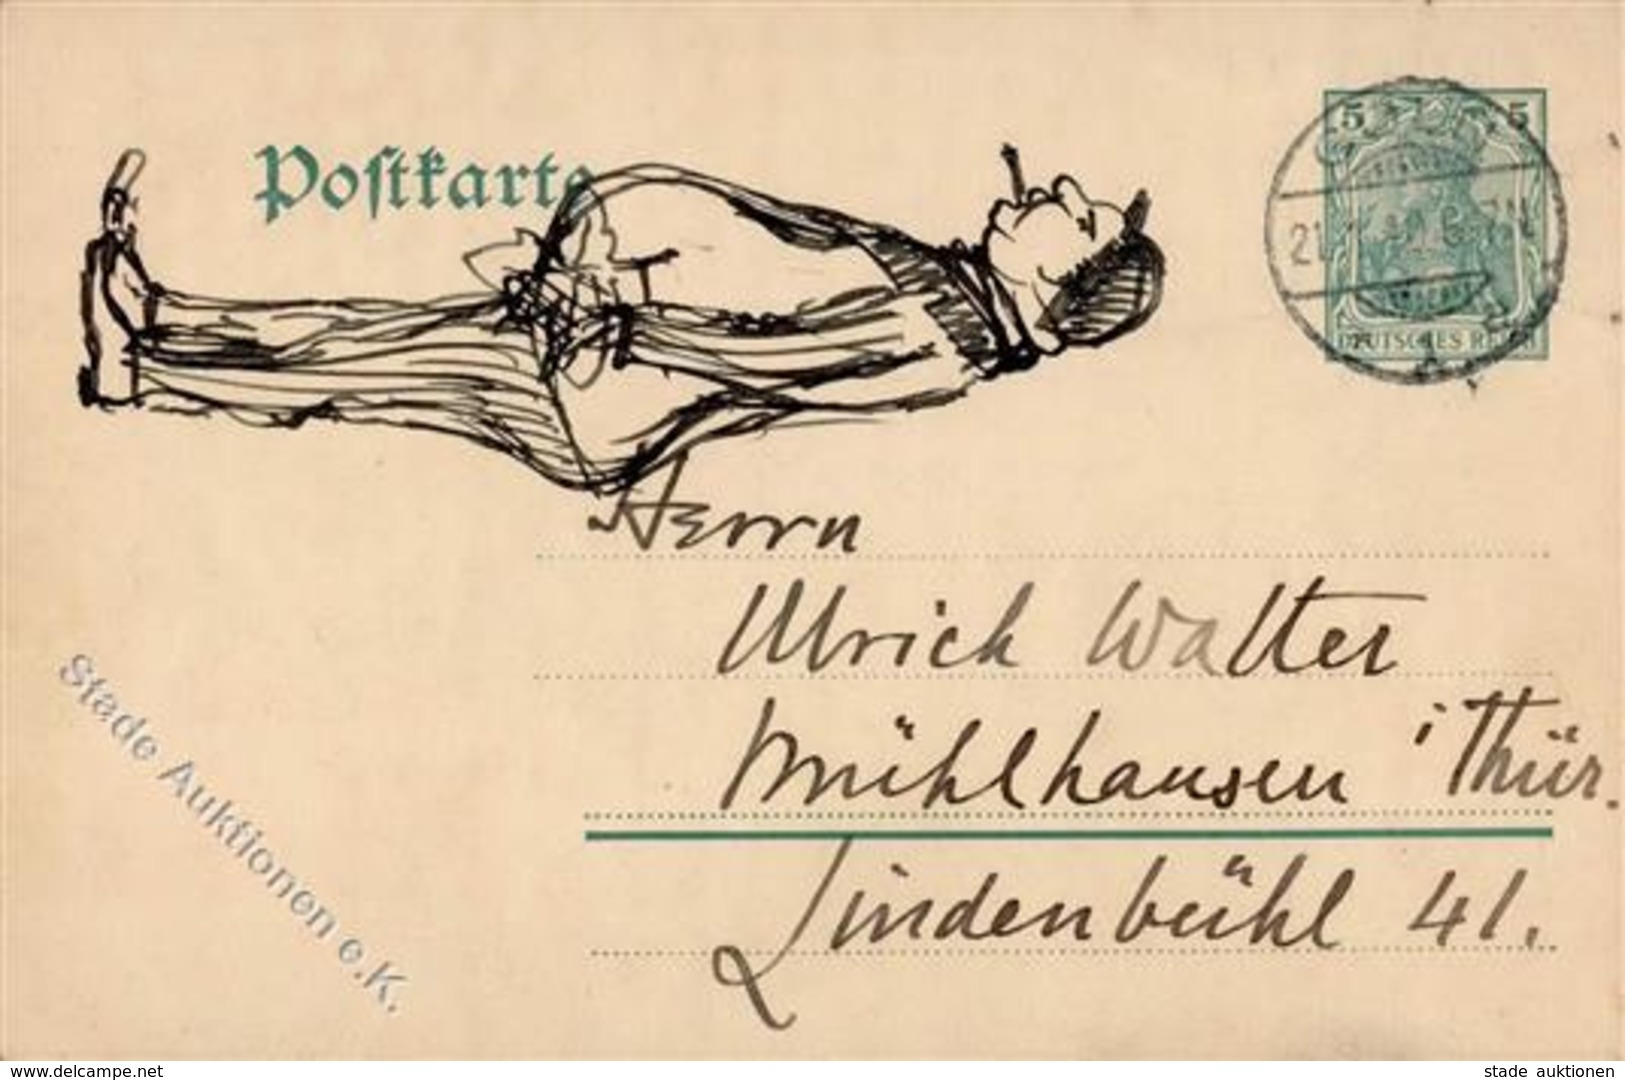 Postkarte
5 5
DEUTSCHES REICH
Herrn
Ulrich Walter
Mühlhausen i Thür.
Lindenbühl 41.
Stade Auktionen e.K.
My Delcampe.net
stade auktionen